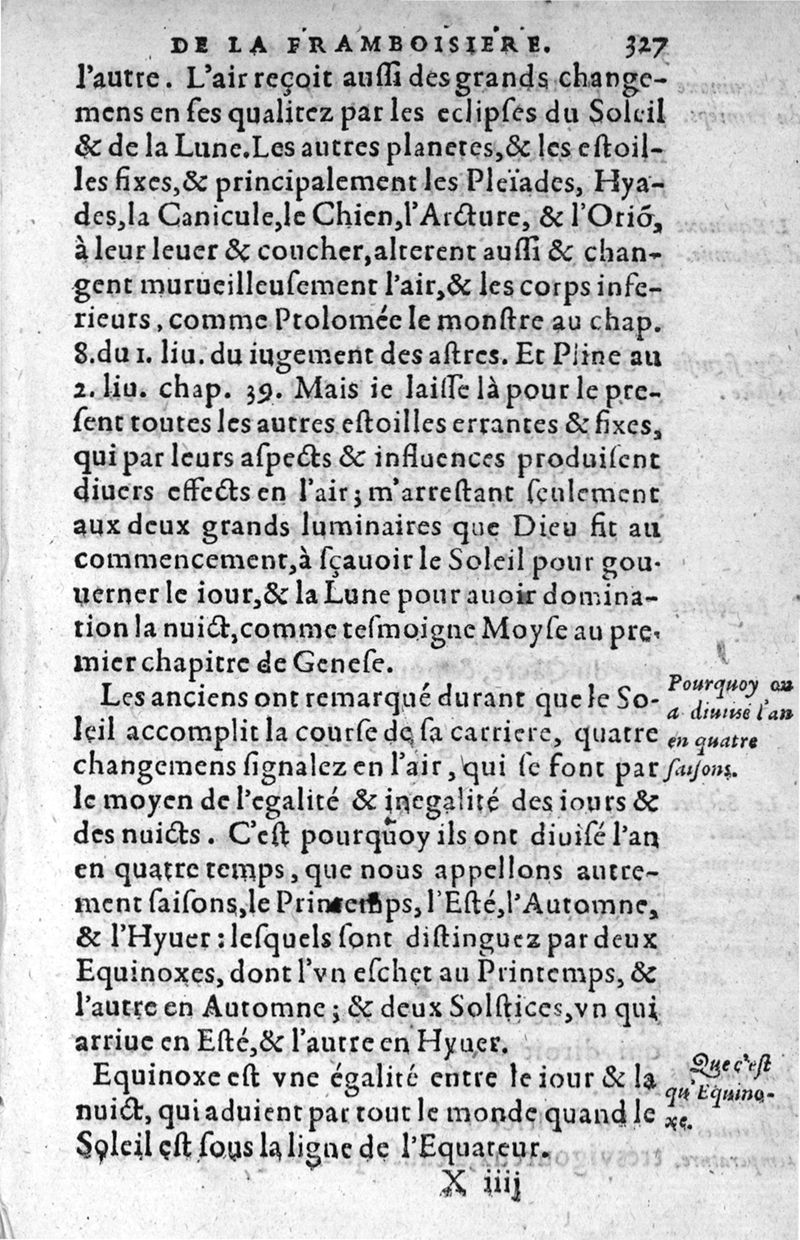 DE LA FRAMBOISIERE. 327
l'autre. L'air reçoit auſſi des grands change-
mens en ſes qualitez par les eclipſes du Soleil
& de la Lune. Les autres planetes, & les eſtoil-
les fixes, & principalement les Pleïades, Hya-
des, la Canicule, le Chien, l'Arcture, & l'Oriõ,
à leur leuer & coucher, alterent auſſi & chan-
gent murueilleuſement l'air, & les corps infe-
rieurs, comme Ptolomée le monſtre au chap.
8. du 1. liu. du iugement des aſtres. Et Pline au
2. liu. chap. 39. Mais ie laiſſe là pour le pre-
ſent toutes les autres eſtoilles errantes & fixes,
qui par leurs aſpects & influences produiſent
diuers effects en l'air; m'arreſtant ſeulement
aux deux grands luminaires que Dieu fit au
commencement, à ſçauoir le Soleil pour gou-
uerner le iour, & la Lune pour auoir domina-
tion la nuict, comme teſmoigne Moyſe au pre-
mier chapitre de Geneſe.
Les anciens ont remarqué durant que le So-
leil accomplit la courſe de ſa carriere, quatre
changemens ſignalez en l'air, qui ſe font par
le moyen de l'egalité & inegalité des iours &
des nuicts. C'eſt pourquoy ils ont diuiſé l'an
en quatre temps, que nous appellons autre-
ment ſaiſons, le Printemps, l'Eſté, l'Automne,
& l'Hyuer: leſquels ſont diſtinguez par deux
Equinoxes, dont l'vn eſchet au Printemps, &
l'autre en Automne; & deux Solſtices, vn qui
arriue en Eſté, & l'autre en Hyuer.
Equinoxe eſt vne égalité entre le iour & la
nuict, qui aduient par tout le monde quand le
Soleil eſt ſous la ligne de l'Equateur.
X iiij
Pourquoy on
a diuisé l'an
en quatre
ſaiſons.
Que c'eſt
qu'Equino-
xe.